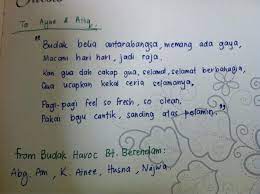 To Ayue & Atiq
"Budak belia antarabangsa, memang ada gaya,
Macam hari hari, jadi raja.
Kan gua dah cakap gua, selamat, selamat berbahagia,
Gua ucapkan kekal ceria selamanya.
Pagi-pagi feel so fresh, so clean,
Pakai baju cantik, sanding atas pelamin."
from Budak Havoc Bt. Berendam:
Abg. Am, K. Ainee, Husna, Najwa.